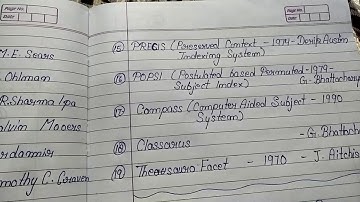 Page No.
Date
Page No.
Date
M.E. Sears
Ohlman
R. Sharma Iya
alvin Mooers
ardamir
mothy C. Craven
(15) PRECIS (Preserved Context - 1974 - Derik Austin
Indexing System)
(16) POPSI (Postulated based Permuted - 1979 -
Subject Index) G. Bhattachary
(17) Compass (Computer Aided Subject - 1990
System)
(18) Classarus - G. Bhattach
(19) Thesauro Facet - 1970 - J. Aitchis